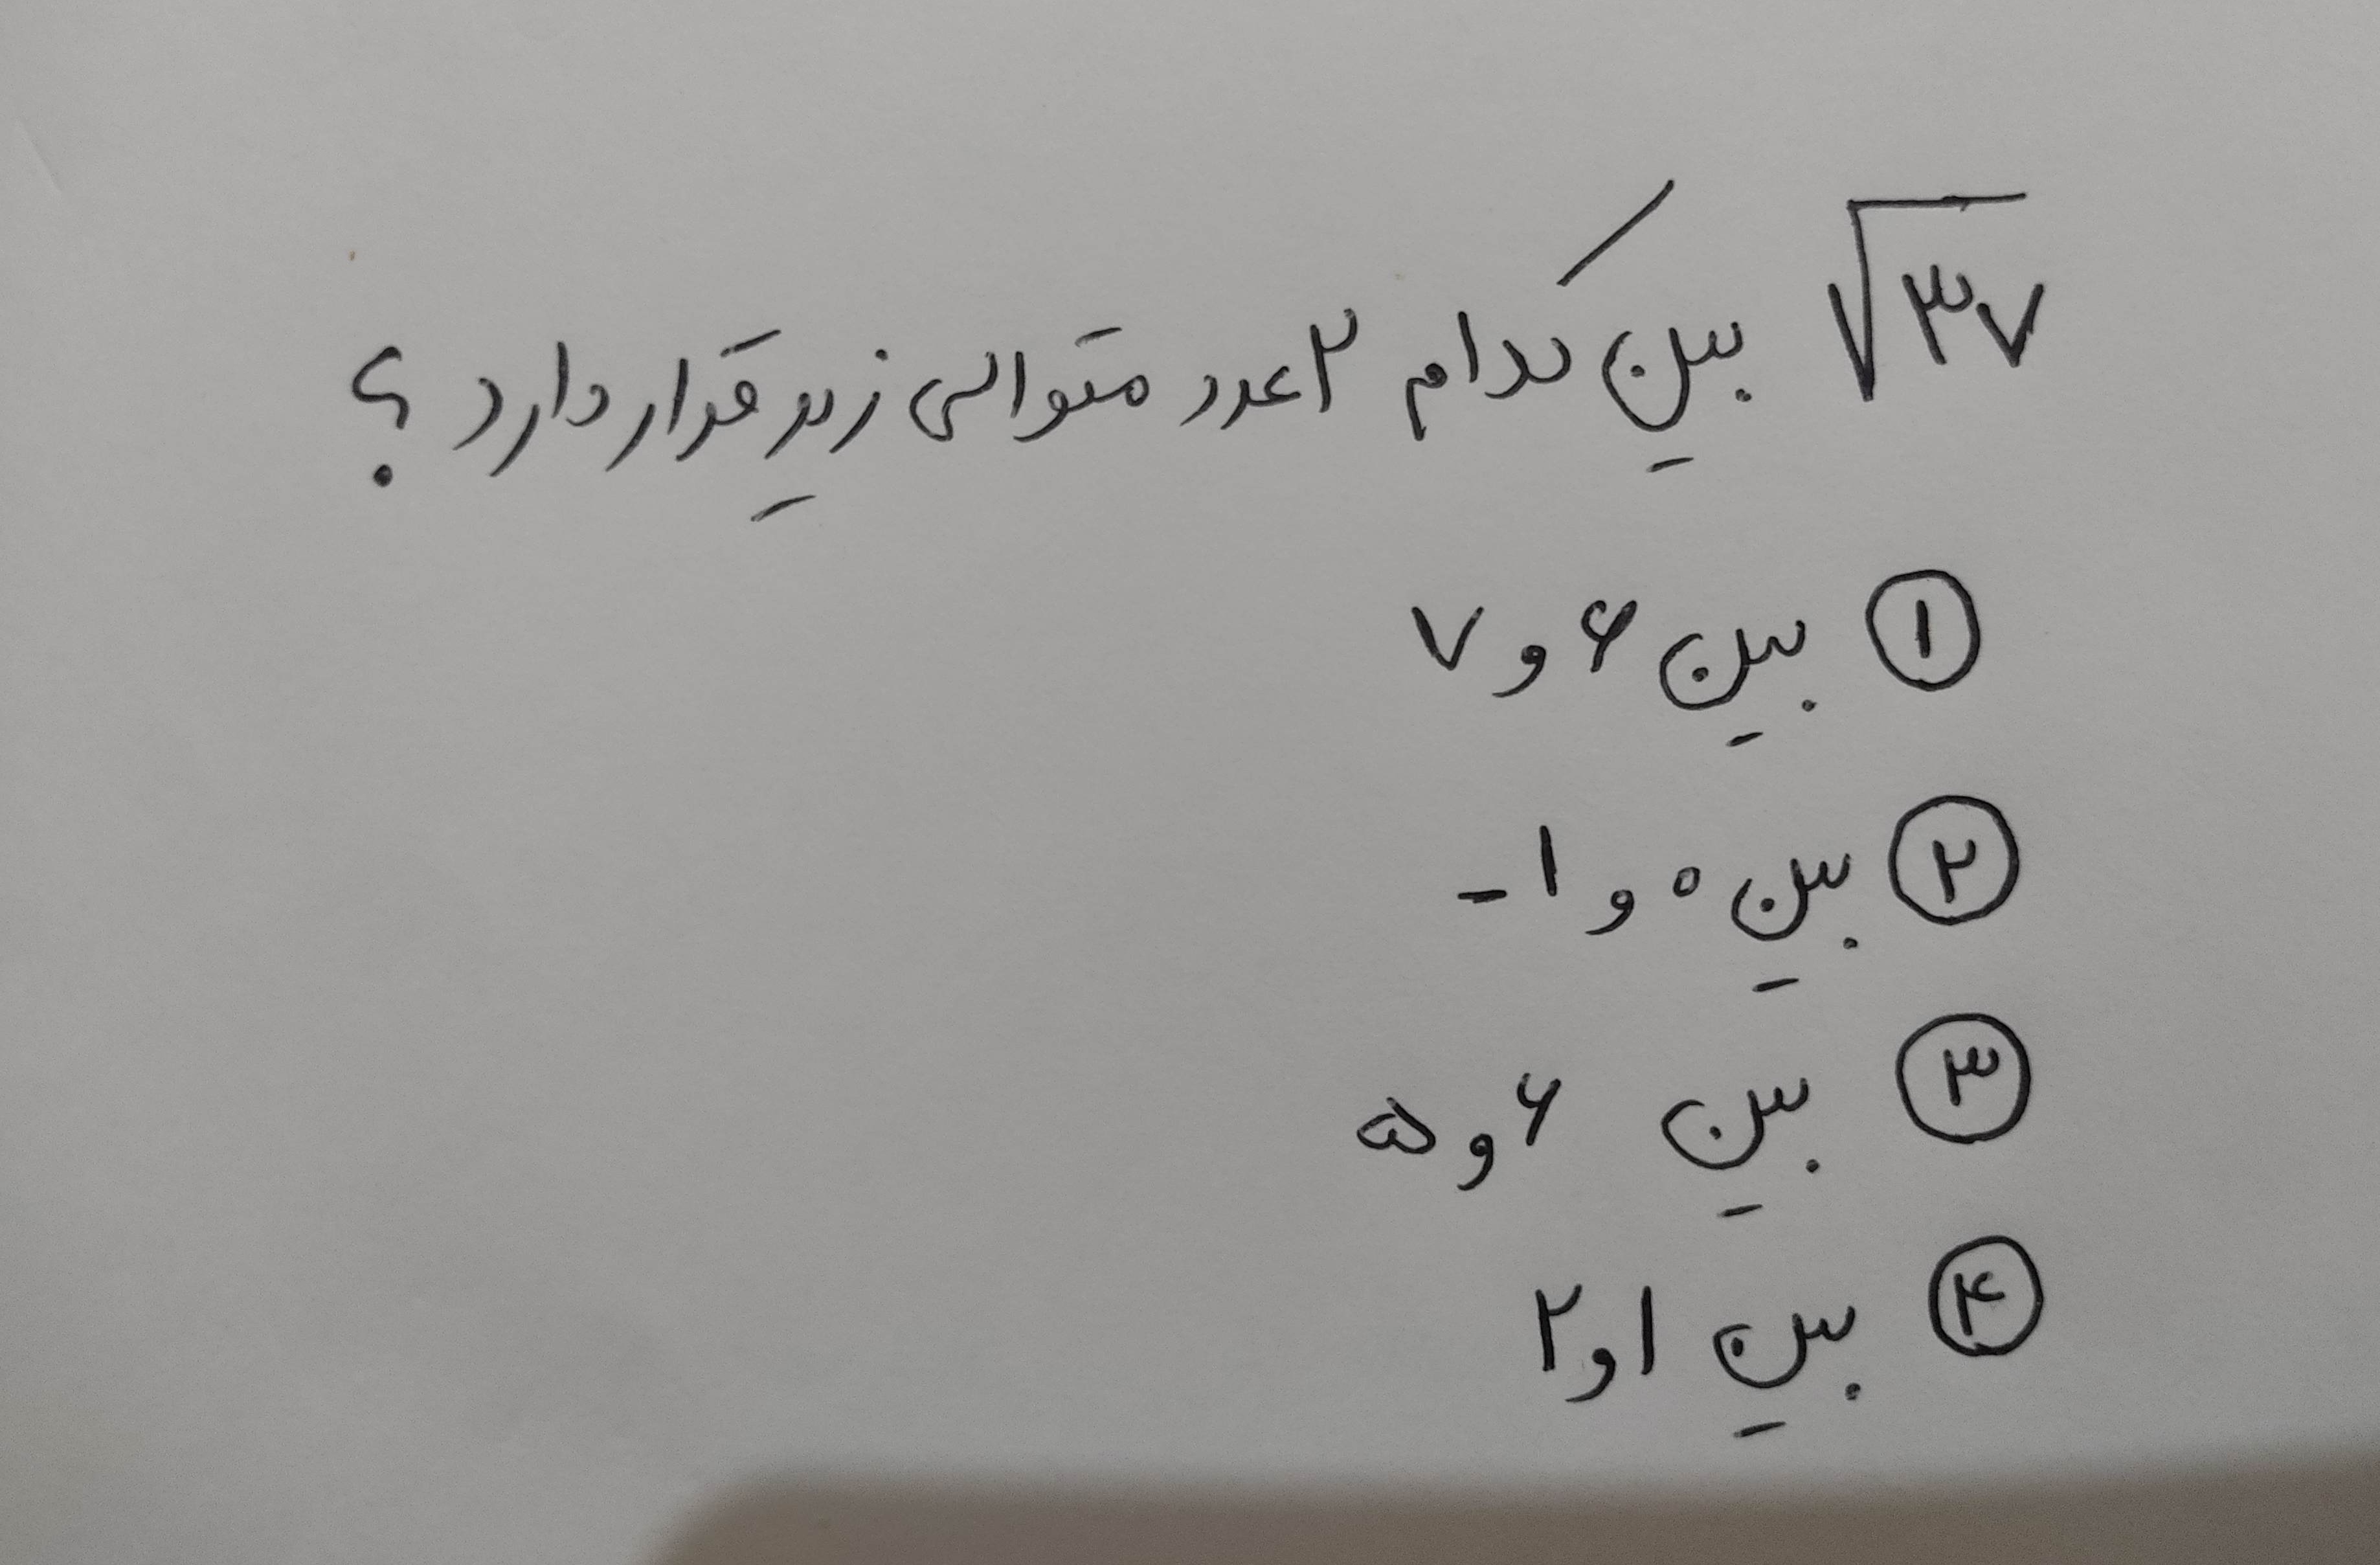 √۳۷ بین کدام ۲ عدد متوالی زیر قرار دارد ؟
① بین ۶ و ۷
② بین ۰ و ۱-
③ بین ۶ و ۵
④ بین ۱ و ۲